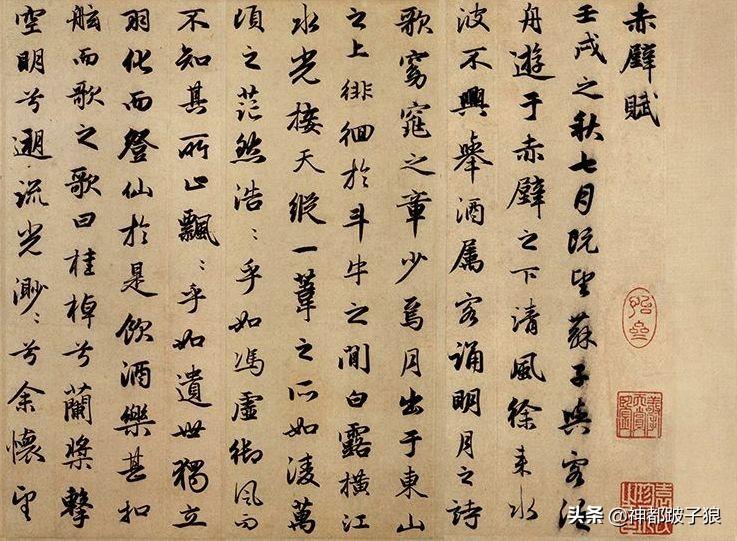 赤壁賦
壬戌之秋七月既望蘇子與客泛
舟遊于赤壁之下清風徐来水
波不興舉酒屬客誦明月之詩
歌窈窕之章少焉月出于東山
之上徘徊於斗牛之間白露橫江
水光接天縱一葦之所如淩萬
頃之茫然浩〻乎如馮虛御風而
不知其所止飄〻乎如遺世獨立
羽化而登仙於是飲酒樂甚扣
舷而歌之歌曰桂棹兮蘭槳擊
空明兮遡流光渺〻兮余懷望
头条 @神都跛子狼